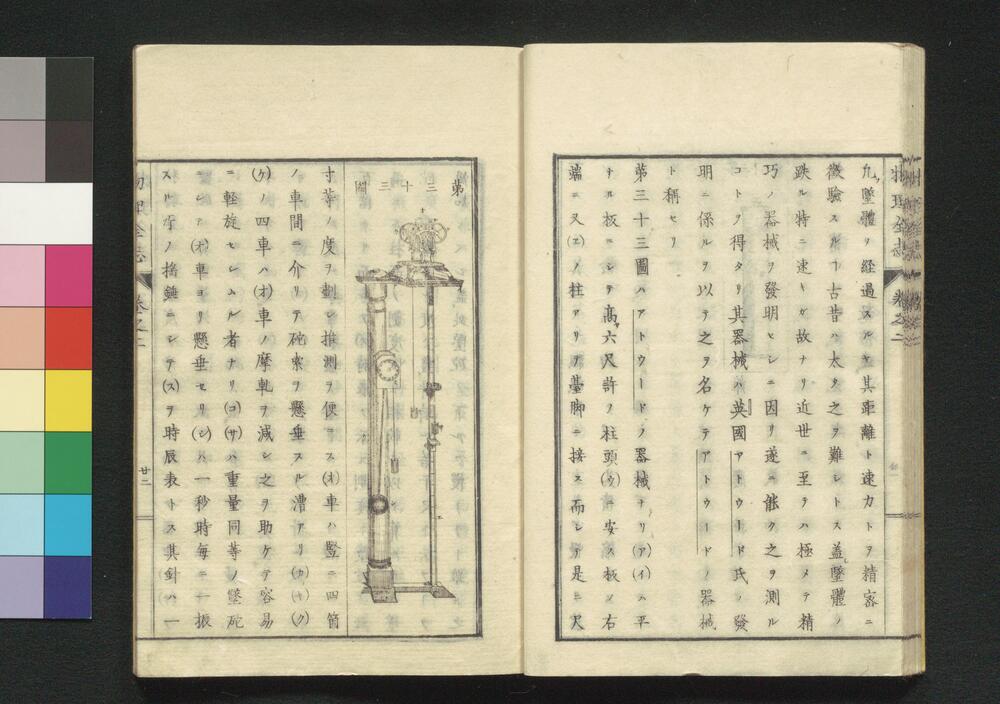 凢墜體ヲ経過スルヤ其距離ト速力トヲ精密ニ
徴驗スルヿ古昔ハ太タ之ヲ難レトス蓋墜體ノ
跌ル特ニ速キガ故ナリ近世ニ至テハ極メテ精
巧ノ器械ヲ發明セシニ因リ遂ニ能ク之ヲ測ル
コトヲ得タリ其器械ハ英國アトウード氏ノ發
明ニ係ルヲ以テ之ヲ名ケテアトウードノ器械
ト稱セリ
第三十三圖ハアトウードノ器械ナリ(ア)(イ)ハ平
ナル板ニシテ高六尺許ノ柱頭(ウ)ニ安ス板ノ右
端ニ又(エ)ノ柱アリテ臺脚ニ接ス而シテ是ニ尺
物理全志
卷之二
第三十三圖
寸等ノ度ヲ劃シ推測ヲ便ニス(オ)車ハ豎ニ四箇
ノ車間ニ介リテ砣索ヲ懸垂スル漕アリ(カ)(キ)(ク)
(ケ)ノ四車ハ(オ)車ノ摩軋ヲ減シ之ヲ助ケテ容易
ニ軽旋セシムル者ナリ(コ)(サ)ハ重量同等ノ墜砣
ニシテ(オ)車ヨリ懸垂セリ(シ)ハ一秒時毎ニ一振
スル所ノ搖錘ニシテ(ス)ヲ時辰表トス其針ハ一
物理全志
卷之二
廿二